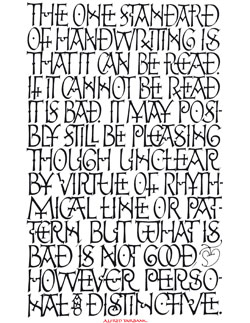 THE ONE STANDARD
OF HANDWRITING IS
THAT IT CAN BE READ.
IF IT CANNOT BE READ
IT IS BAD. IT MAY POSI-
BLY STILL BE PLEASING
THOUGH UNCLEAR
BY VIRTUE OF RHYTH-
MICAL LINE OR PAT-
TERN BUT WHAT IS
BAD IS NOT GOOD
HOWEVER PERSO-
NAL & DISTINCTIVE.
ALFRED FAIRBANK